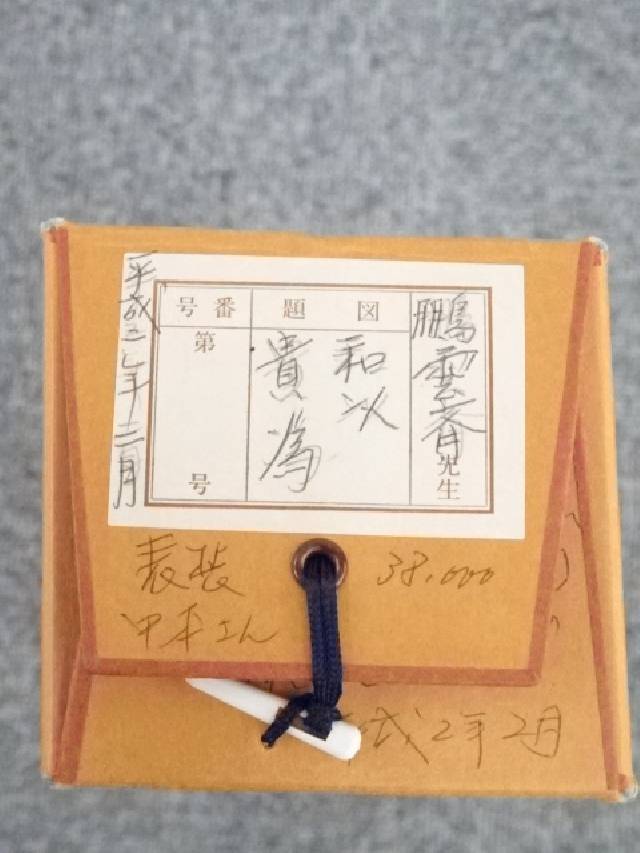 鵬雲斎先生
図題
和以
貴為
番号
第
号
平成二年二月
表装 38.000
中本さん
成2年2月